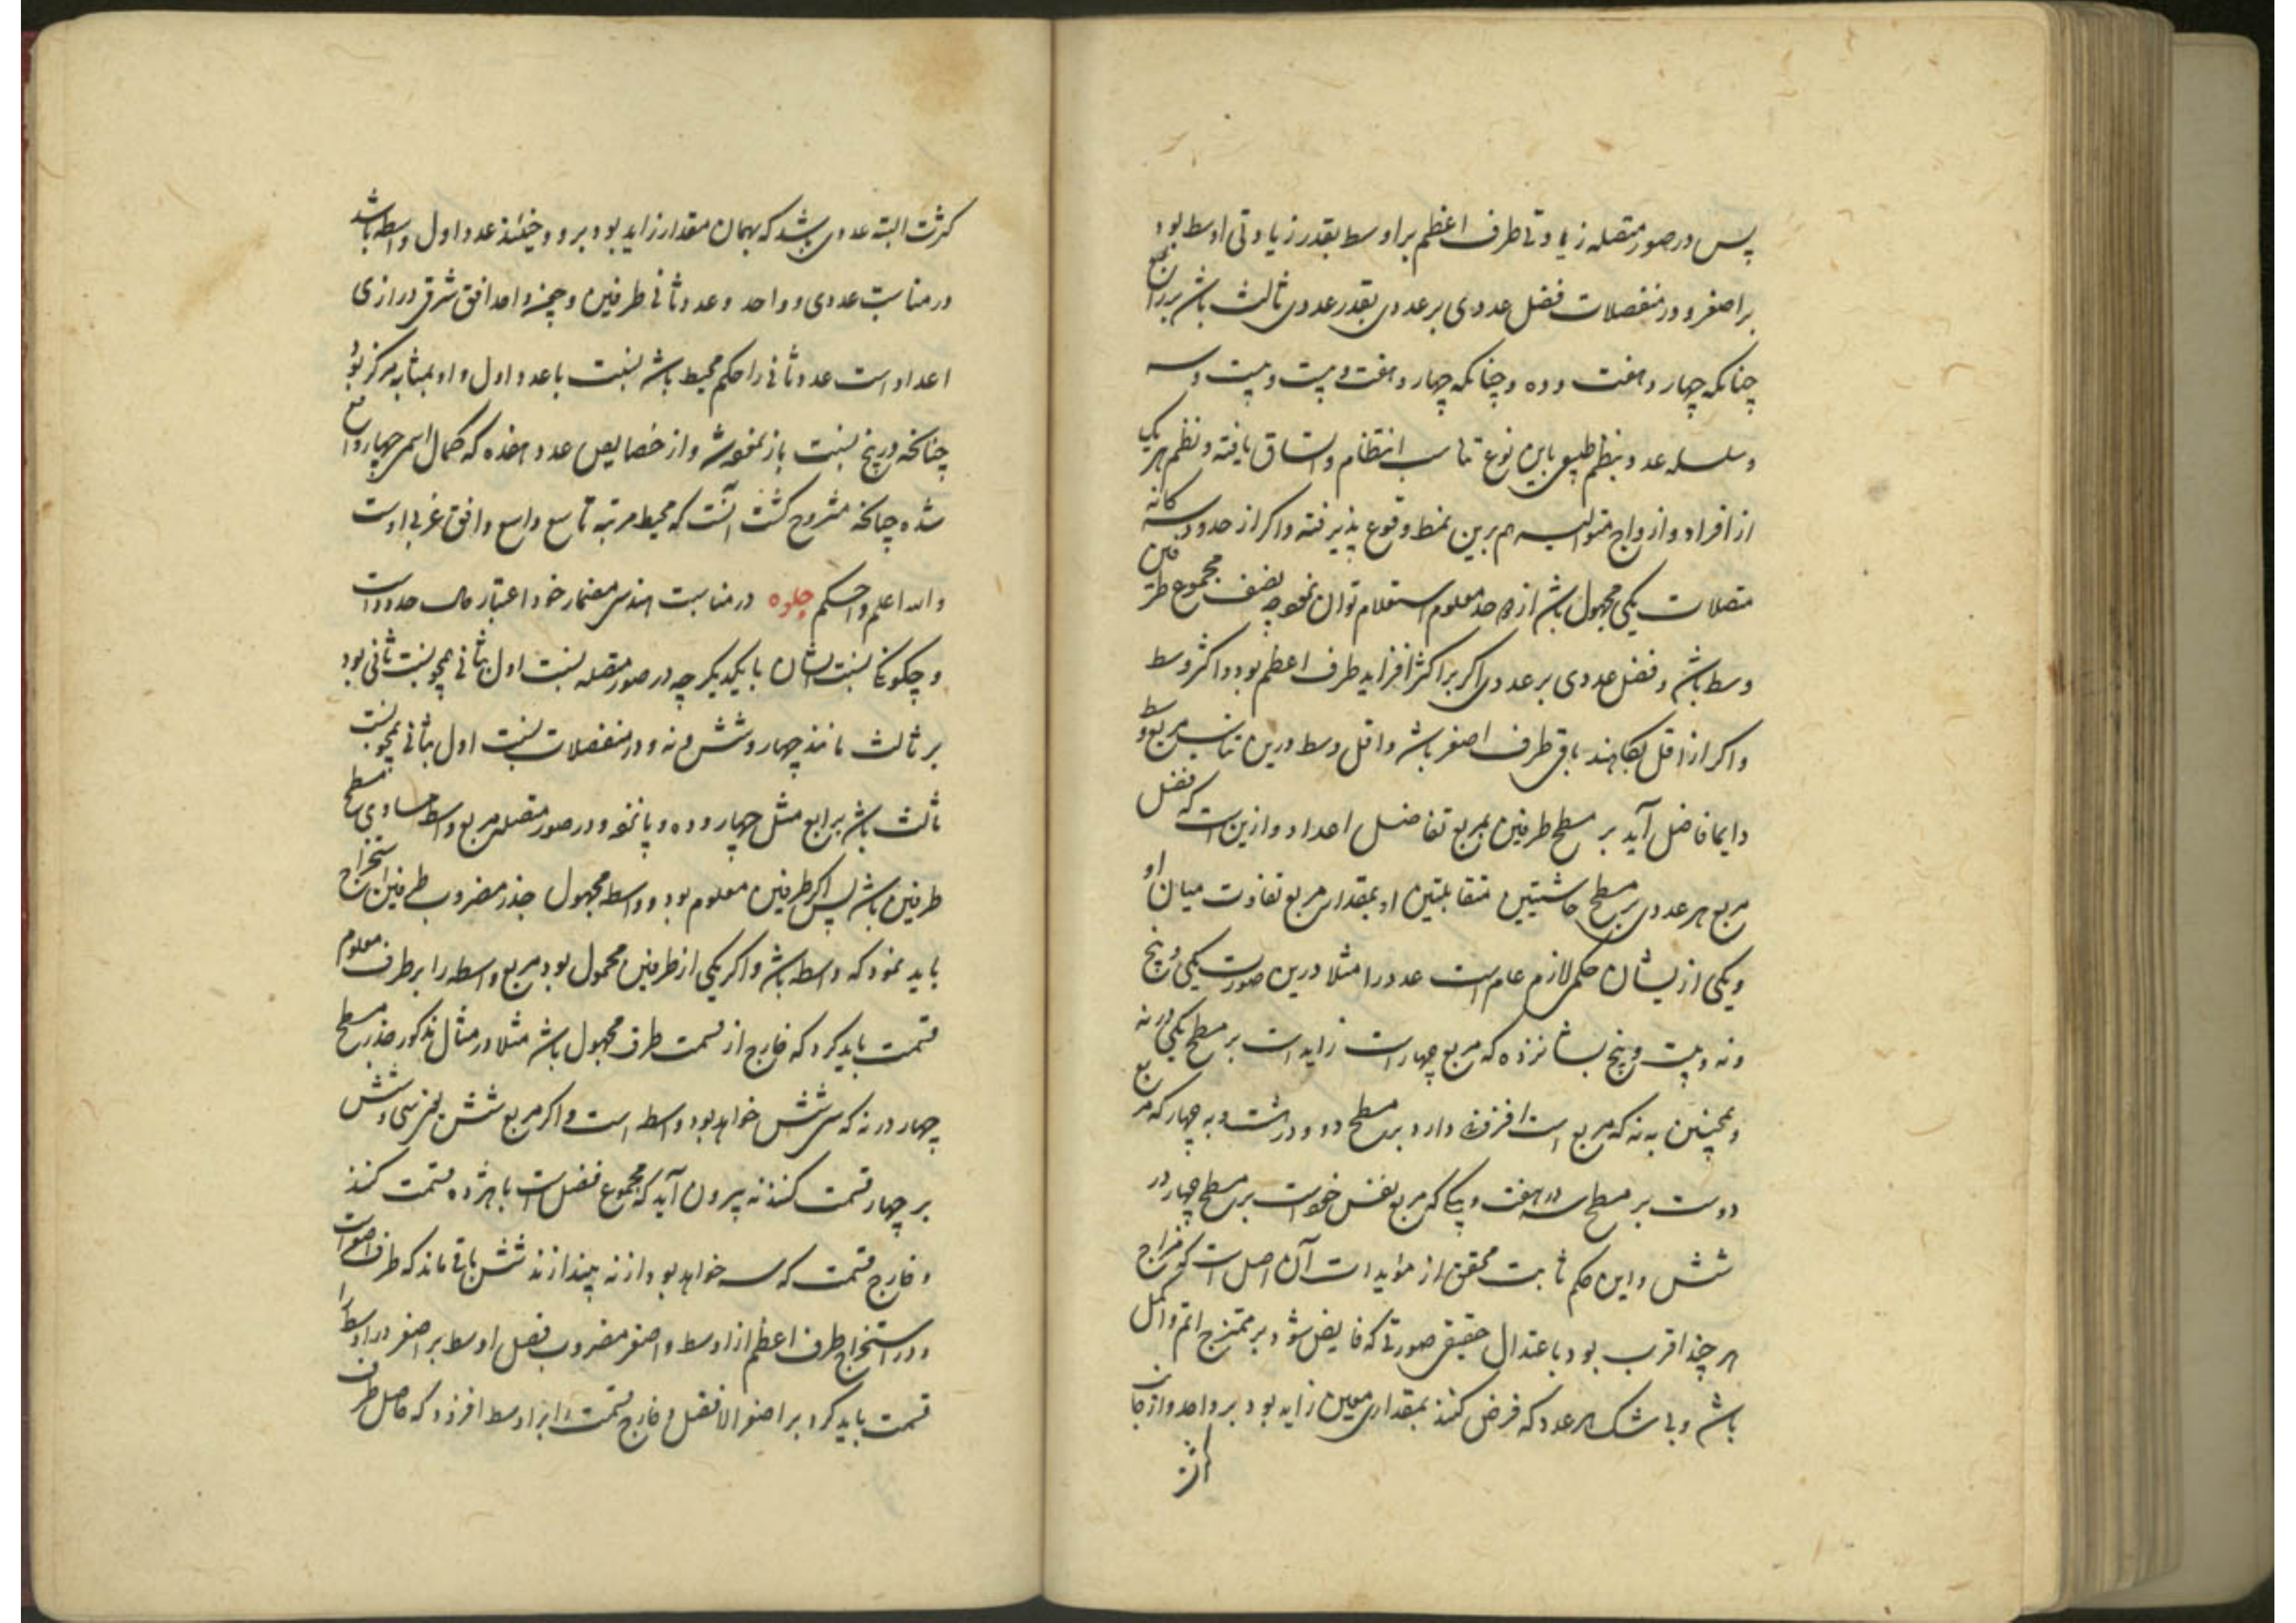 پس در صور متصله زیادتی طرف اعظم بر اوسط بقدر زیادتی اوسط بود
بر اصغر و در منفصلات فضل عددی بر عددی بقدر عددی ثالث باشد بر رابع
چنانکه چهار و هفت و ده و چنانکه چهار و هفت و بیست و بیست و سه
و سلسله عدد بنظم طبیعی باین نوع تناسب انتظام و اتساق یافته و نظم هر یک
از افراد و ازواج متوالیه هم برین نمط وقوع پذیرفته و اگر از حدود سه کانه
متصلات یکی مجهول باشد از دو حد معلوم استعلام توان نمود چه نصف مجموع طرفین
وسط باشد و فضل عددی بر عددی اگر بر اکثر افزاید طرف اعظم بود و اکثر وسط
و اگر از اقل بکاهند باقی طرف اصغر باشد و اقل وسط و درین تناسب مربع وسط
دایما فاضل آید بر مسطح طرفین بمربع تفاضل اعداد و ازین است که فضل
مربع هر عددی بر مسطح حاشیتین متقابلتین او بمقدار مربع تفاوت میان او
و یکی از یشان حکمی لازم عام است عدد را مثلا درین صورت یکی و پنج
و نه و بیست و پنج بشانزده که مربع چهار است زاید است بر مسطح یکی در نه
و همچنین به نه که مربع است افزونی دارد بر مسطح دو و در هشت و به چهار که مربع
دوست بر مسطح سه در هفت و بیکی که مربع نفس خودست بر مسطح چهار در
شش و این حکم ثابت محقق از مؤیدات آن اصل است که مزاج
هر چند اقرب بود باعتدال حقیقی صورتی که فایض شود بر ممتزج اتم و اکمل
باشد و بی شک هر عدد که فرض کنند بمقداری معین زاید بود بر واحد و از جانب
کثرت
کثرت البته عددی باشد که بهمان مقدار زاید بود برو و حینئذ عدد اول واسطه باشد
در مناسبت عددی و واحد و عدد ثانی طرفین و چون واحد افق شرقی درازی
اعداد است عدد ثانی را حکم محیط باشد نسبت با عدد اول و او بمثابه مرکز بود
چنانچه در پنج نسبت باز نموده شد و از خصایص عدد هفده که کمال اسمی چهار واقع
شده چنانچه مشروح گشت آنست که محیط مرتبه تاسع واسع و افق غربی اوست
والله اعلم و احکم جلوه در مناسبت هندسی مضمار خود اعتبار حال حدود است
و چگونگی نسبت ایشان با یکدیگر چه در صور متصله نسبت اول بثانی همچو نسبت ثانی بود
بر ثالث مانند چهار و شش و نه و در منفصلات نسبت اول بثانی همچو نسبت
ثالث باشد برابع مثل چهار و ده و پانزده و در صور متصله مربع واسطه مساوی مسطح
طرفین باشد پس اگر طرفین معلوم بود و واسطه مجهول جذر مضروب طرفین استخراج
باید نمود که واسطه باشد و اگر یکی از طرفین مجهول بود مربع واسطه را بر طرف معلوم
قسمت باید کرد که خارج از قسمت طرف مجهول باشد مثلا در مثال مذکور جذر مسطح
چهار در نه که سی شش خواهد بود واسطه است و اگر مربع شش یعنی سی و شش
بر چهار قسمت کنند نه بیرون آید که مجموع فضل است با هژده قسمت کنند
و خارج قسمت که سه خواهد بود از نه بیندازند شش باقی ماند که طرف اصغر است
و در استخراج طرف اعظم از اوسط و اصغر مضروب فضل اوسط بر اصغر در اوسط را
قسمت باید کرد بر اصغر الا فضل و خارج قسمت را بر اوسط افزود که حاصل طرف